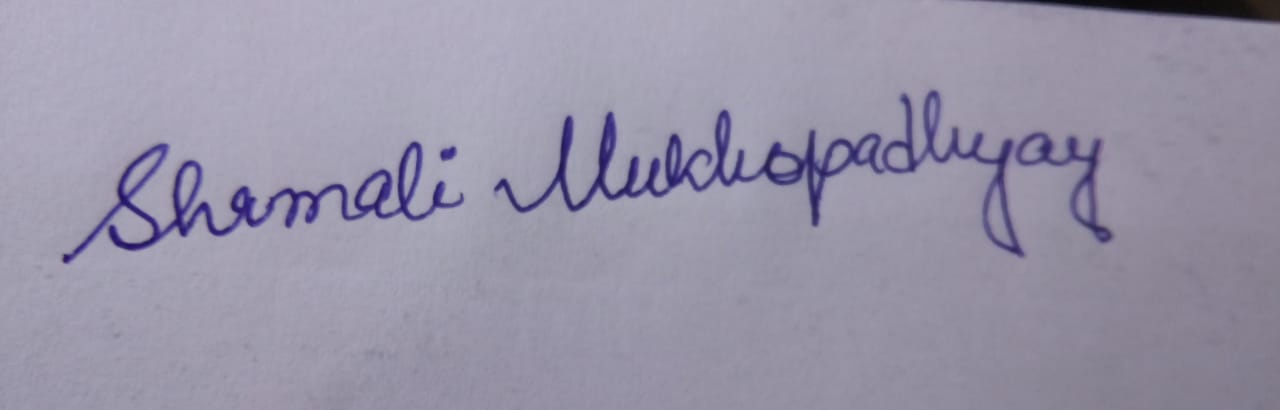 Shrmali Mukhopadhyay